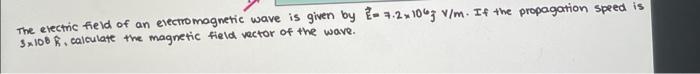 The electric field of an electromagnetic wave is given by E⃗= 7.2×10⁶ĵ V/m. If the propagation speed is
3×10⁸ k̂, calculate the magnetic field vector of the wave.